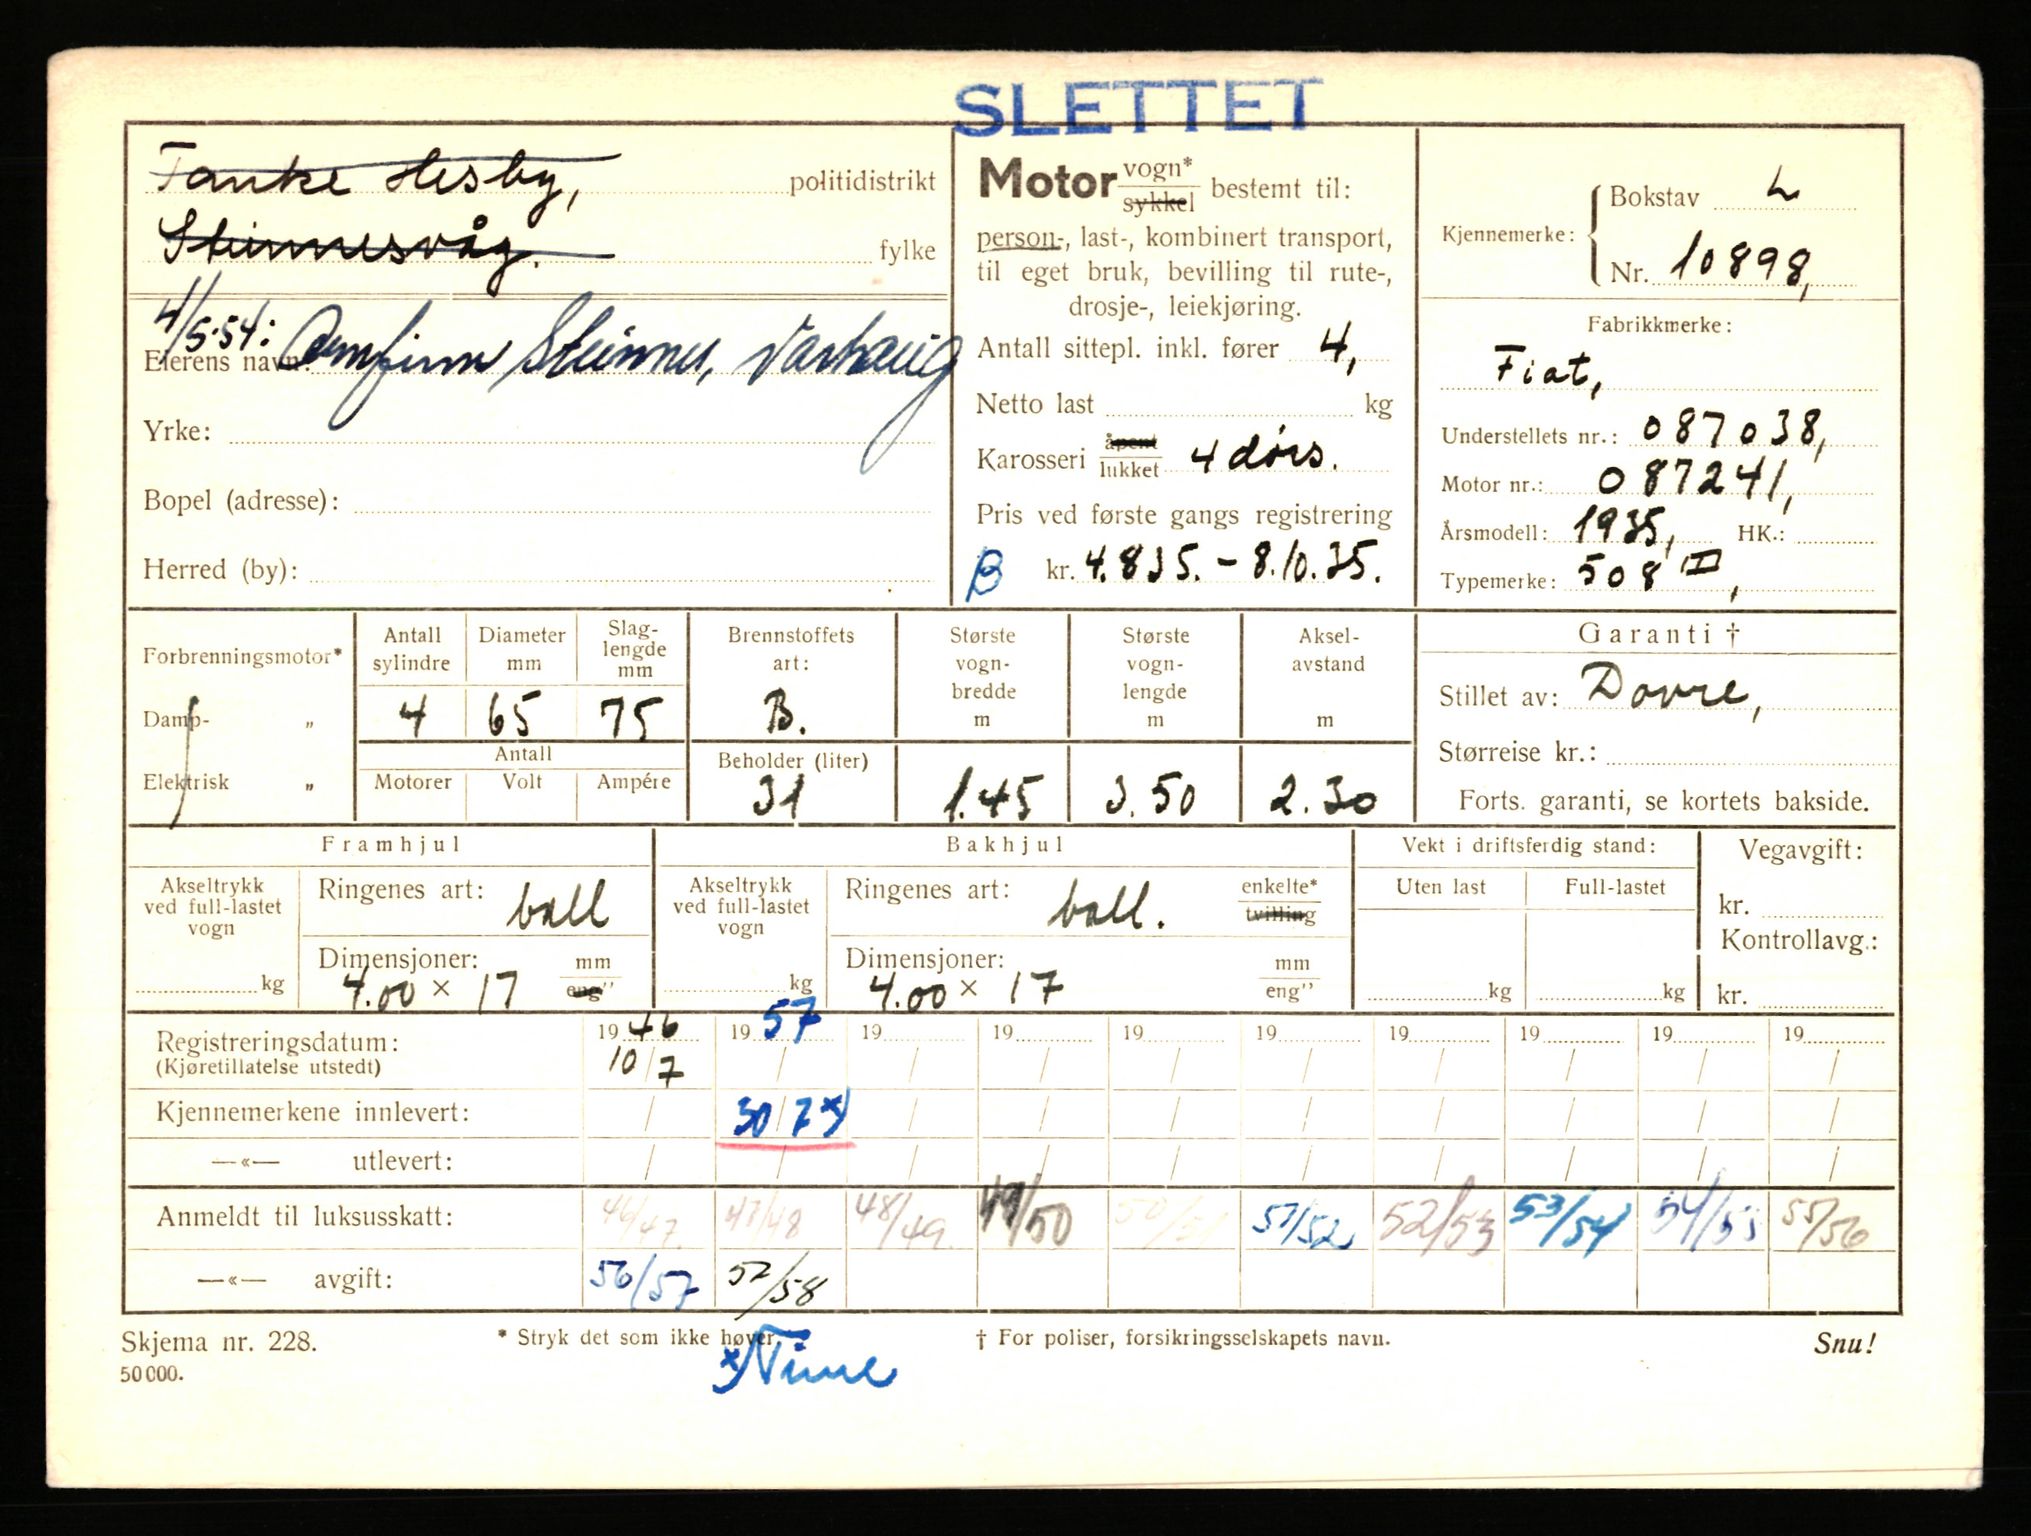 SLETTET
Tanke Hesby, politidistrikt
Steinnesvåg. fylke
4/5-54:
Eierens navn: Arnfinn Steinnes, Varhaug
Yrke:
Bopel (adresse):
Herred (by):
Motor vogn* sykkel bestemt til:
person-, last-, kombinert transport,
til eget bruk, bevilling til rute-,
drosje-, leiekjøring.
Antall sittepl. inkl. fører 4,
Netto last kg
Karosseri åpent lukket 4 dørs.
Pris ved første gangs registrering
B kr. 4.835.- 8.10.35.
Kjennemerke: Bokstav L
Nr. 10898,
Fabrikkmerke:
Fiat,
Understellets nr.: 087038,
Motor nr.: 087241,
Årsmodell: 1935, HK.:
Typemerke: 508 II,
Forbrenningsmotor*
Damp- „
Elektrisk „
Antall sylindre Diameter mm Slag-lengde mm
4 65 75
Antall
Motorer Volt Ampére
Brennstoffets art:
B.
Beholder (liter)
31
Største vogn-bredde m
1.45
Største vogn-lengde m
3.50
Aksel-avstand m
2.30
Garanti †
Stillet av: Dovre,
Størreise kr.:
Forts. garanti, se kortets bakside.
Framhjul
Akseltrykk ved full-lastet vogn
kg
Ringenes art: ball
Dimensjoner: mm
4.00 × 17 eng"
Bakhjul
Akseltrykk ved full-lastet vogn
kg
Ringenes art: ball. enkelte* tvilling
Dimensjoner: mm
4.00 × 17 eng"
Vekt i driftsferdig stand:
Uten last Full-lastet
kg kg
Vegavgift:
kr.
Kontrollavg.:
kr.
Registreringsdatum: 1946 1957 19 19 19 19 19 19 19 19
(Kjøretillatelse utstedt) 10/7 / / / / / / / / /
Kjennemerkene innlevert: / 30/7 x) / / / / / / / /
—«— utlevert: / / / / / / / / / /
Anmeldt til luksusskatt: 46/47. 47/48 48/49. 49/50 50/51 51/52 52/53 53/54 54/55 55/56
—«— avgift: 56/57 57/58
Skjema nr. 228. * Stryk det som ikke høver. † For poliser, forsikringsselskapets navn. Snu!
50000.
x)